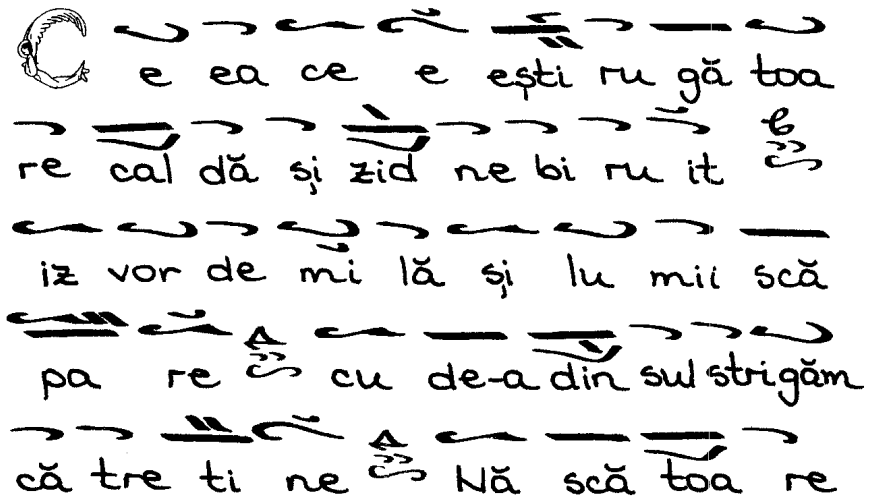 C e ea ce e ești ru gă toa
re cal dă și zid ne bi ru it
iz vor de mi lă și lu mii scă
pa re cu de-a din sul strigăm
că tre ti ne Nă scă toa re